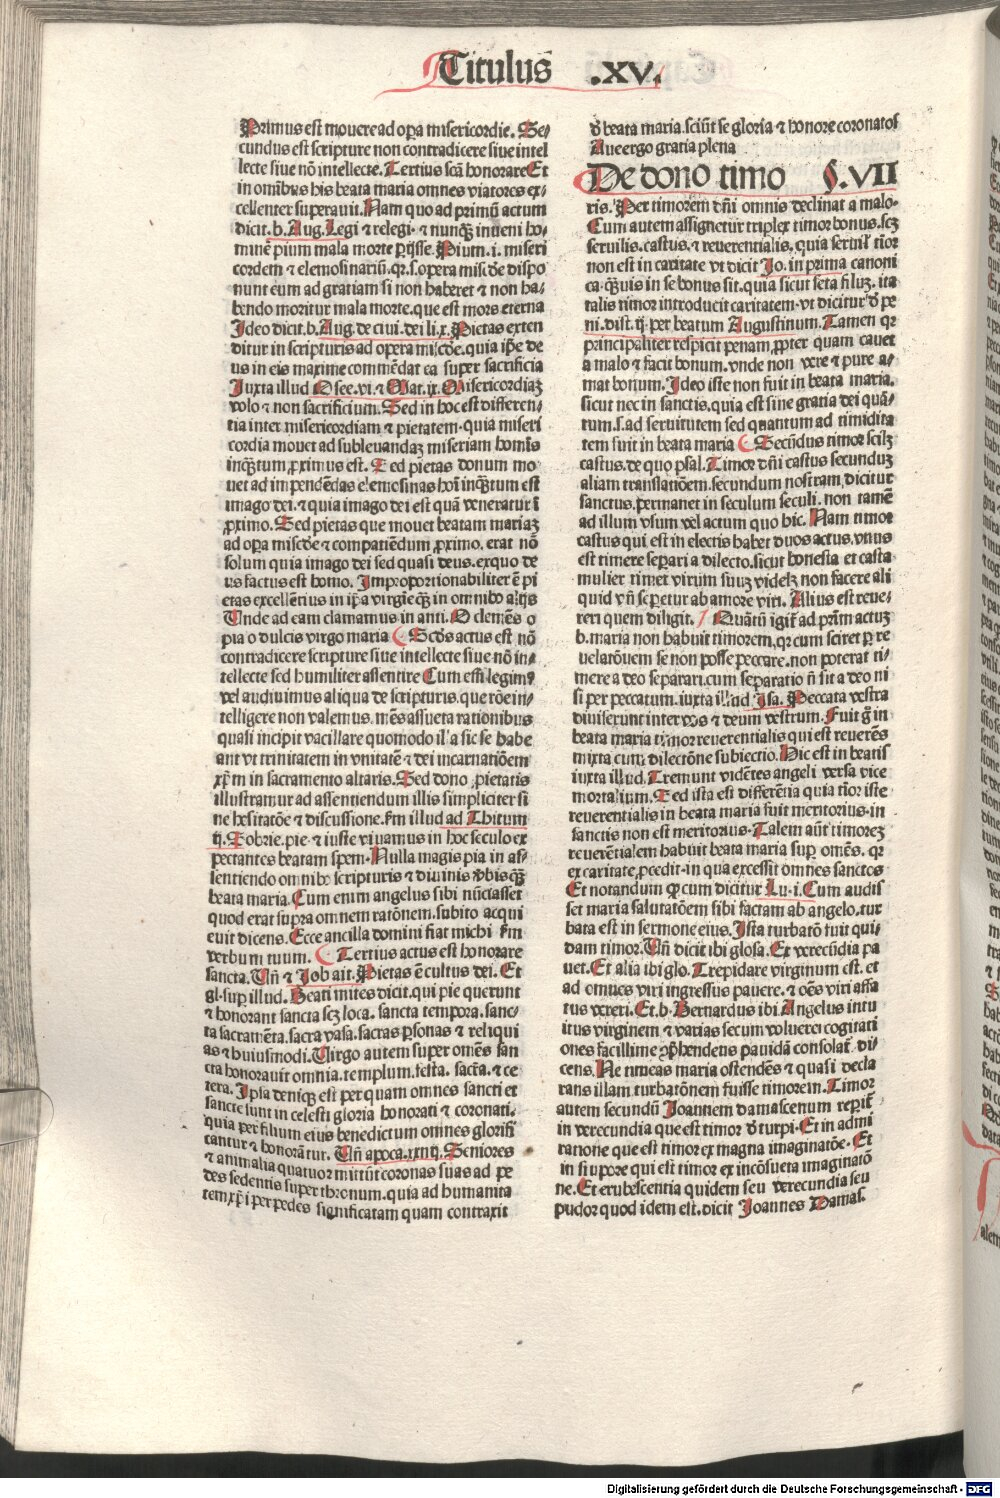 Titulus .XV.
Primus est mouere ad opa misericordie. Se/
cundus est scripture non contradicere siue intel
lecte siue nõ intellecte. Tertius scã honorare Et
in omĩbus his beata maria omnes viatores ex/
cellenter superauit. Nam quo ad primũ actum
dicit.b. Aug. Legi ⁊ relegi ⁊ nunq̃ inueni ho/
minẽ pium mala morte perijsse. Pium .i. miseri
cordem ⁊ elemosinariũ. qr̃.s. opera misc̃die dispo
nunt eum ad gratiam si non haberet ⁊ non ha/
bendo moritur mala morte. que est mors eterna
Ideo dicit.b. Aug. de ciui. dei li.x. Pietas exten
ditur in scripturis ad opera misc̃die. quia ip̃e de
us in eis maxime commẽdat ea super sacrificia
Iuxta illud Osee.vi.⁊ Mat.ix. Misericordiaʒ
volo ⁊ non sacrificium. Sed in hoc est differen/
tia inter misericordiam ⁊ pietatem. quia miseri
cordia mouet ad subleuandaʒ miseriam homĩs
inq̃tum proximus est. Sed pietas donum mo
uet ad impendẽdas elemosinas hoĩ inq̃tum est
imago dei. ⁊ quia imago dei est quã veneratur ĩ
proximo. Sed pietas que mouet beatam mariaʒ
ad opa misc̃die ⁊ compatiẽdum proximo. erat nõ
solum quia imago dei sed quasi deus. exquo de
us factus est homo. Improportionabiliter ẽ pi
etas excellẽtius in ip̃a virgĩe q̃ in omnibo alijs
Unde ad eam clamamus in anti. O clemẽs o
pia o dulcis virgo maria Scds actus est nõ
contradicere scripture siue intellecte siue nõ in/
tellecte sed humiliter assentire Cum em̃ legimꝰ
vel audiuimus aliqua de scripturis. que rõe in/
telligere non valemus. mẽs assueta rationibus
quasi incipit vacillare quomodo illa sic se habe
ant vt trinitatem in vnitatẽ ⁊ dei incarnatiõem
xp̃m in sacramento altaris. Sed dono pietatis
illustramur ad assentiendum illis simpliciter si
ne hesitatõe ⁊ discussione. fm illud ad Thitum
ij. Sobrie. pie. ⁊ iuste viuamus in hoc seculo ex
pectantes beatam spem. Nulla magis pia in as/
sentiendo omnibo scripturis ⁊ diuinis v̾bis q̃
beata maria. Cum enim angelus sibi nũciasset
quod erat supra omnem ratõnem. subito acqui
euit dicens. Ecce ancilla domini fiat michi fm
verbum tuum. Tertius actus est honorare
sancta. Uñ ⁊ Iob ait. Pietas ẽ cultus dei. Et
gl. sup illud. Beati mites dicit. qui pie querunt
⁊ honorant sancta scʒ loca. sancta tempora. sanc/
ta sacramẽta. sacra vasa. sacras psonas ⁊ reliqui
as ⁊ huiusmodi. Uirgo autem super omẽs san
cta honorauit omnia. templum. festa. sacra. ⁊ ce
tera. Ipsa deniq̃ est per quam omnes sancti et
sancte sunt in celesti gloria honorati ⁊ coronati.
quia per filium eius benedictum omnes glorifi
cantur ⁊ honorãtur. Uñ apoca.xxiiij. Seniores
⁊ animalia quatuor mittũt coronas suas ad pe
des sedentis super thronum. quia ad humanita
tem xp̃i per pedes significatam quam contraxit
d̾ beata maria. sciũt se gloria ⁊ honore coronatos
Aue ergo gratia plena
De dono timo §.VII
ris. Per timorem dñi omnis declinat a malo.
Cum autem assignetur triplex timor bonus. scʒ
seruilis. castus. ⁊ reuerentialis. quia seruil' tĩor
non est in caritate vt dicit Jo. in prima canoni
ca. q̃uis in se bonus sit. quia sicut seta filuʒ. ita
talis timor introducit caritatem. vt dicitur d̾ pe
ni. dist. ij. per beatum Augustinum. Tamen qr̃
principaliter respicit penam. propter quam cauet
a malo ⁊ facit bonum. vnde non vere ⁊ pure a/
mat bonum. Ideo iste non fuit in beata maria.
sicut nec in sanctis. quia est sine gratia dei quã/
tum.s. ad seruitutem sed quantum ad timidita
tem fuit in beata maria Secũdus timor scilʒ
castus. de quo psal. Timor dñi castus secunduʒ
aliam translatiõem. secundum nostram dicitur
sanctus. permanet in seculum seculi. non tamẽ
ad illum vsum vel actum quo hic. Nam timor
castus qui est in electis habet duos actus. vnus
est timere separi a dilecto. sicut honesta et casta
mulier timet virum suuʒ videlʒ non facere ali
quid vñ sepetur ab amore viri. Alius est reue/
reri quem diligit. Quãtũ igit̃ ad prim̃ actuʒ
b. maria non habuit timorem. qr̃ cum sciret per re
uelatõuem se non posse peccare. non poterat ti/
mere a deo separari. cum separatio ñ sit a deo ni
si per peccatum. iuxta illud Isa. Peccata vestra
diuiserunt inter vos ⁊ deum vestrum. Fuit g̃ in
beata maria timor reuerentialis qui est reuerẽs
mixta cum dilectõne subiectio. Hic est in beatis
iuxta illud. Tremunt vidẽtes angeli versa vice
mortalium. Sed ista est differẽtia quia tĩor iste
reuerentialis in beata maria fuit meritorius. in
sanctis non est meritorius. Talem aũt timoreʒ
reuerẽtialem habuit beata maria sup omẽs. qr̃
ex caritate pcedit. in qua excessit omnes sanctos
Et notandum qp cum dicitur Lu.i. Cum audis
set maria salutatõem sibi factam ab angelo. tur
bata est in sermone eius. Ista turbatõ fuit qui/
dam timor. Uñ dicit ibi glosa. Ex verecũdia pa
uet. Et alia ibi glo. Trepidare virginum est. et
ad omnes viri ingressus pauere. ⁊ oẽs viri affa
tus vereri. Et.b. Bernardus ibi Angelus intu
itus virginem ⁊ varias secum voluere cogitati
ones facillime pphendens pauidã consolat̃ di/
cens. Ne timeas maria ostendẽs ⁊ quasi decla
rans illam turbatõnem fuisse timorem. Timor
autem secundũ Joannem damascenum reperit̃
in verecundia que est timor d̾ turpi. Et in admi
ratione que est timor ex magna imaginatõe. Et
in stupore qui est timor ex incõsueta imaginatõ
ne. Et erubescentia quidem seu verecundia seu
pudor quod idem est. dicit Joannes Damas.
Digitalisierung gefördert durch die Deutsche Forschungsgemeinschaft - DFG